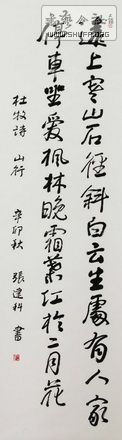 遠上寒山石徑斜白云生處有人家
停車坐愛楓林晚霜葉紅於二月花
杜牧詩 山行
辛卯秋 張建科 書
www.SHUFF.org